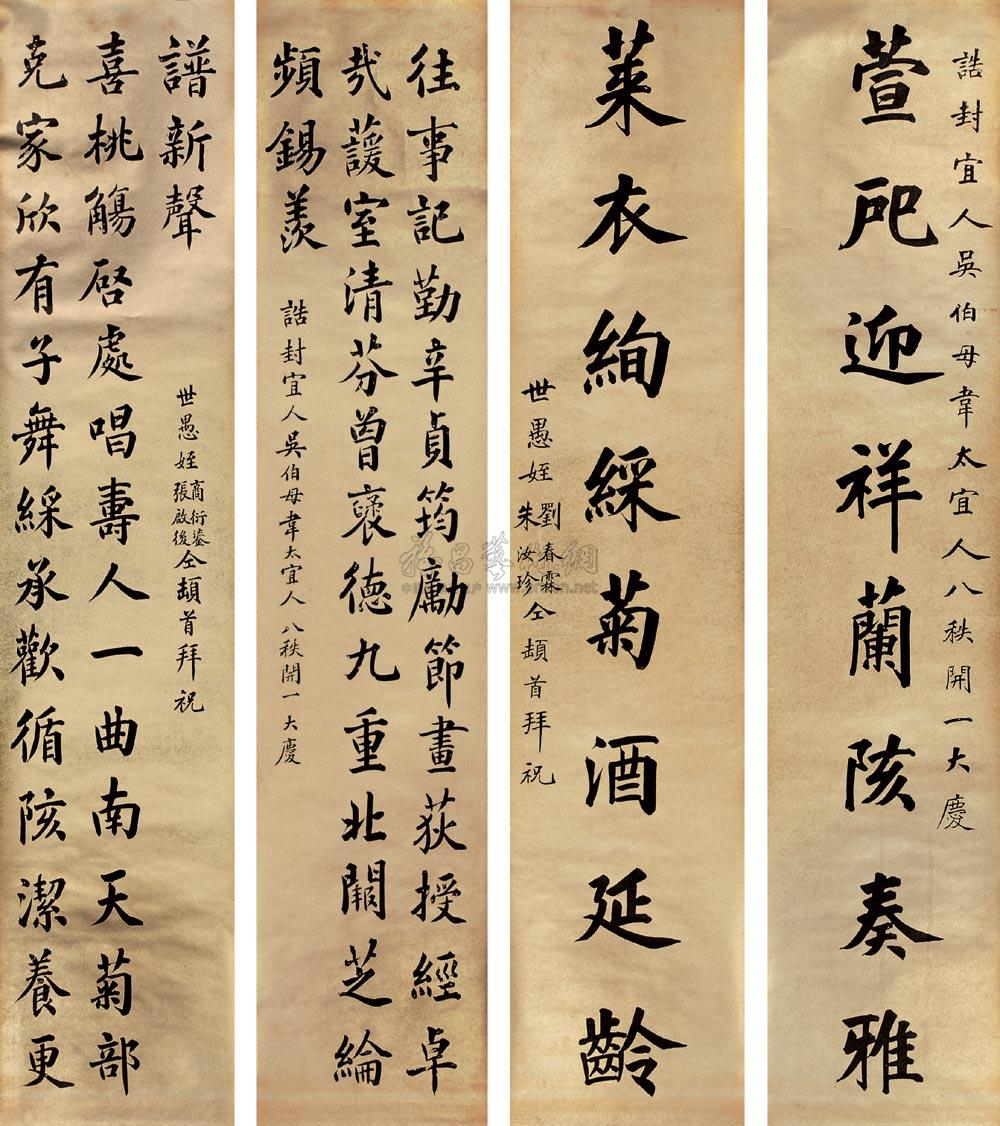 誥封宜人吳伯母韋太宜人八秩開一大慶
萱戺迎祥蘭陔奏雅
萊衣絢綵菊酒延齡
世愚姪
劉春霖
朱汝珍
仝頓首拜祝
往事記勤辛貞筠勵節畫荻授經卓
哉蘐室清芬曾褒德九重北闕芝綸
頻錫羨
誥封宜人吳伯母韋太宜人八秩開一大慶
克家欣有子舞綵承歡循陔潔養更
喜桃觴啓處唱壽人一曲南天菊部
譜新聲
世愚姪
商衍鎏
張啟後
仝頓首拜祝